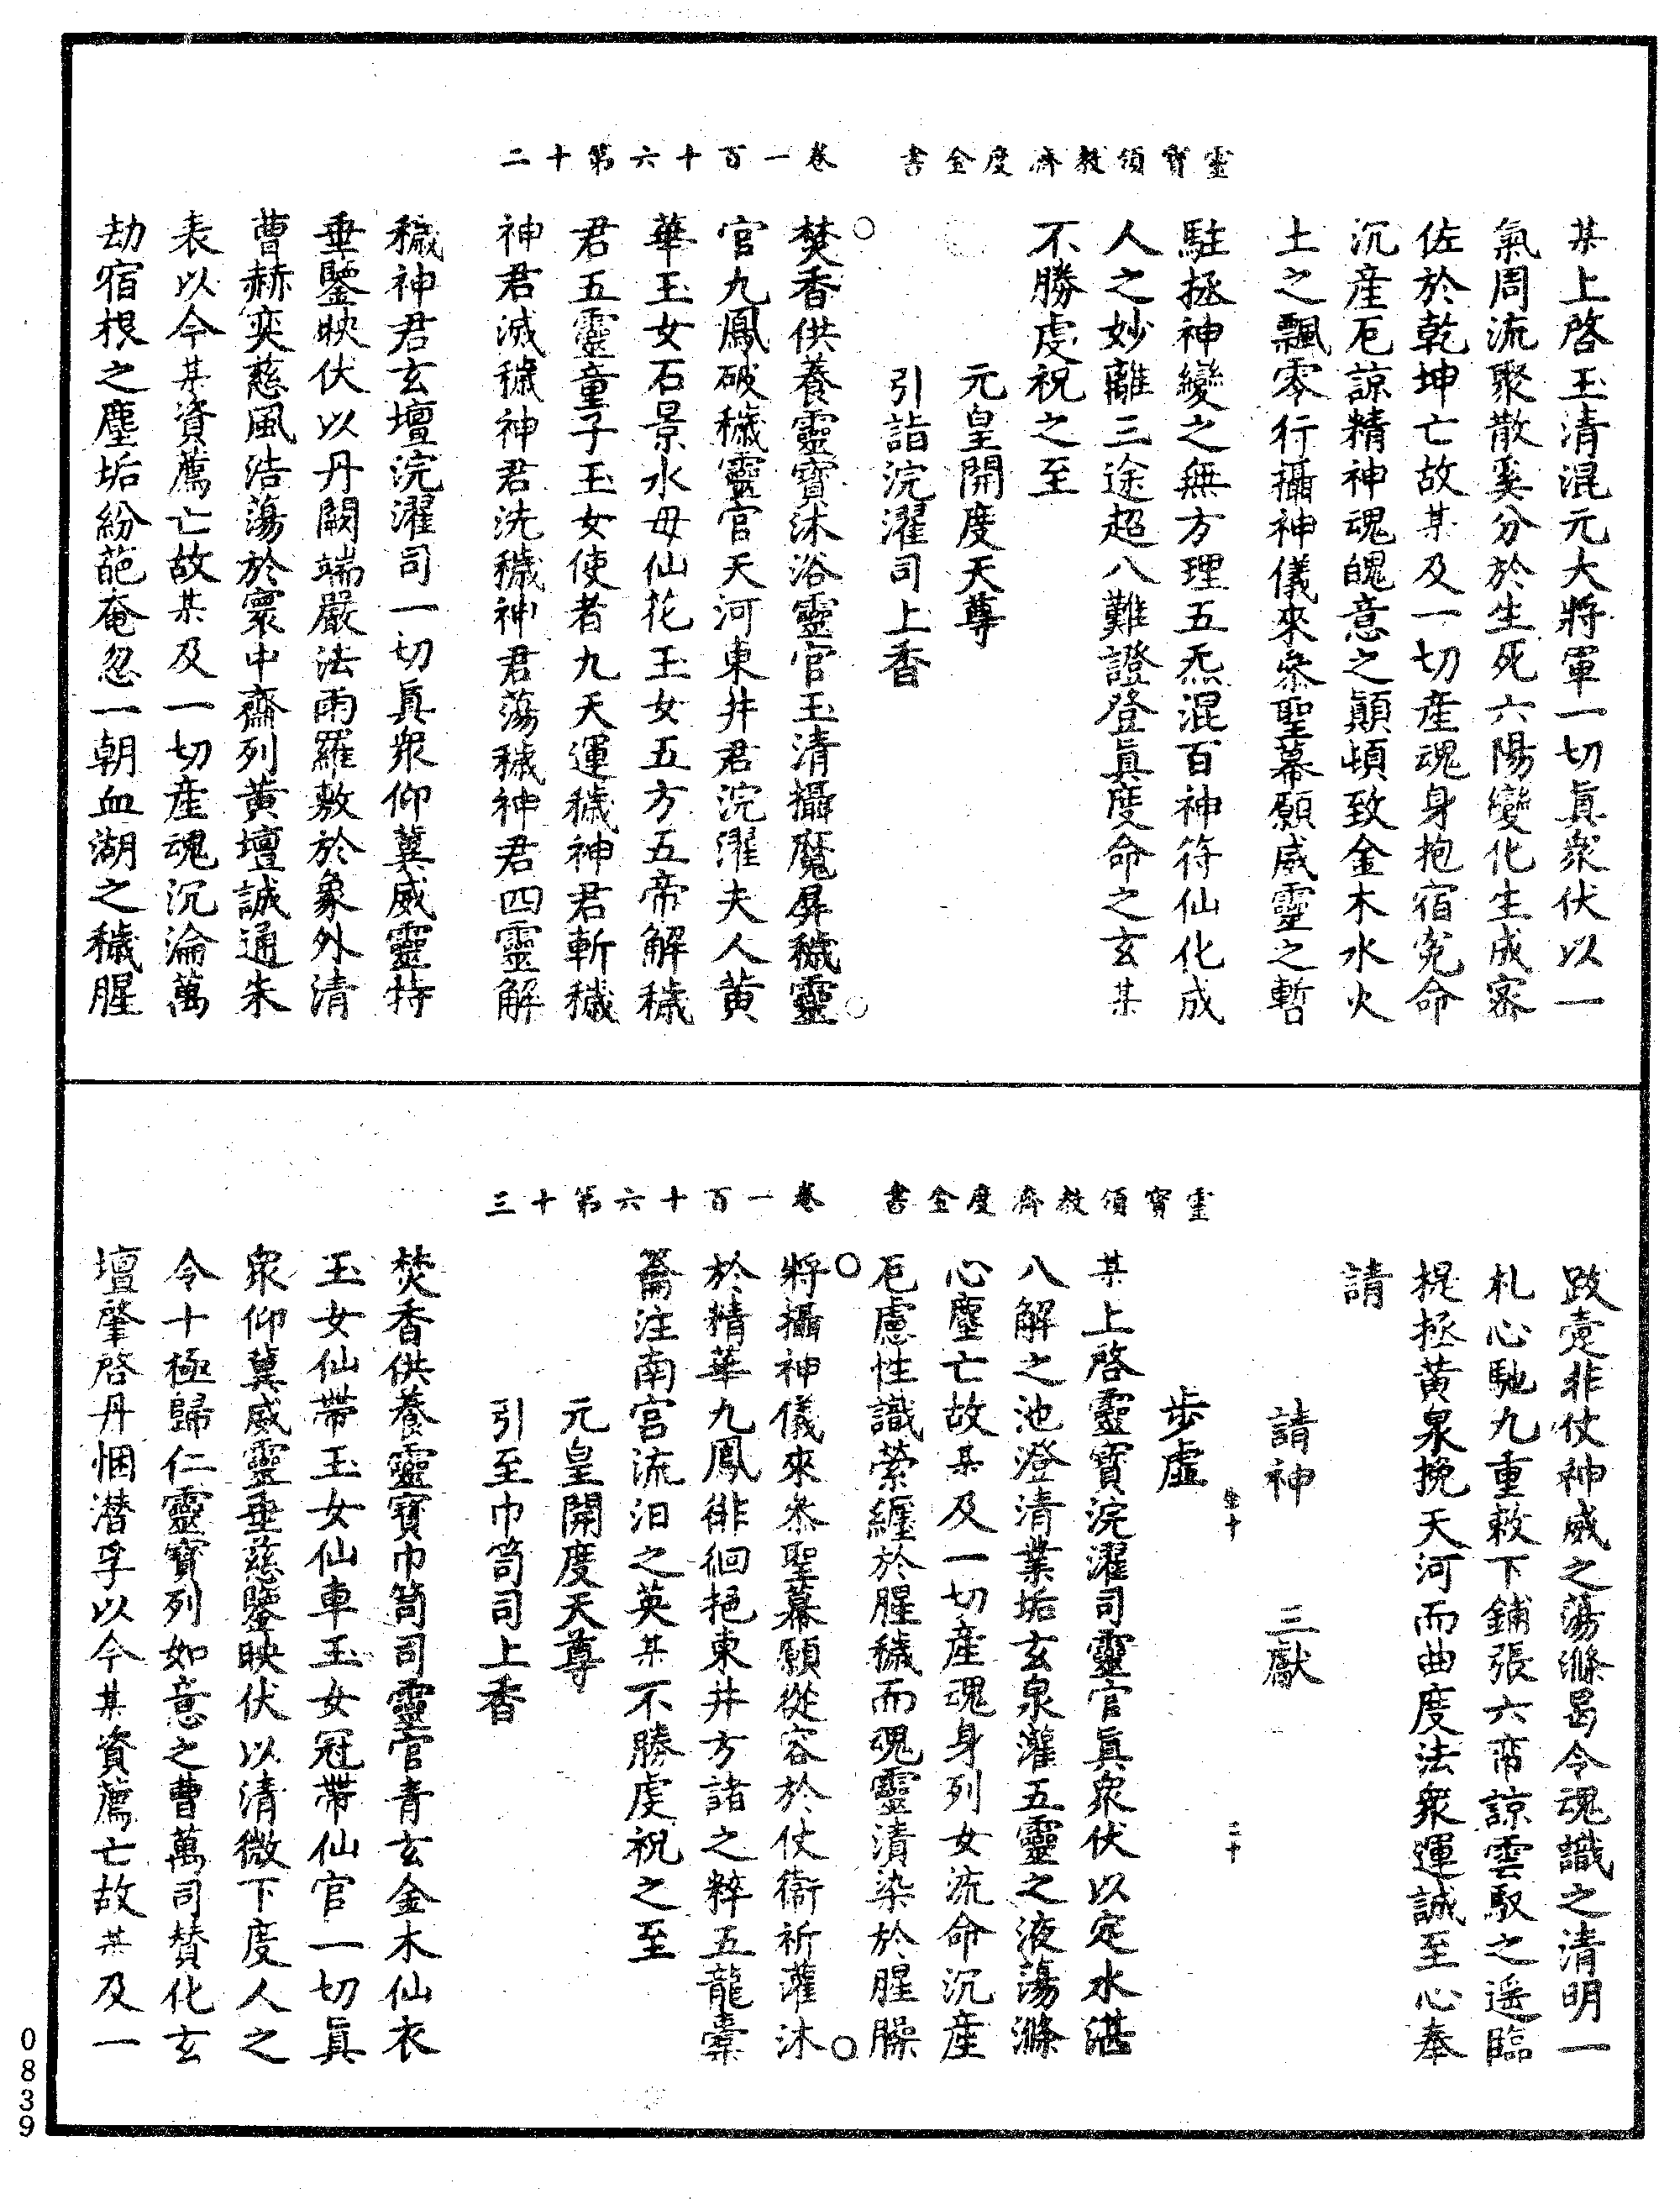 靈寶領教濟度金書　卷一百六十第十二
某上啓玉清混元大將軍一切眞衆伏以一
氣周流聚散奚分於生死六陽變化生成客
佐於乾坤亡故某及一切產魂身抱宿寃命
沉產厄諒精神魂魄意之顚頓致金木水火
土之飄零行攝神儀來叅聖幕願威靈之暫
駐拯神變之無方理五炁混百神符仙化成
人之妙離三途超八難證登眞度命之玄某
不勝虔祝之至
元皇開度天尊
引詣浣濯司上香
焚香供養靈寶沐浴靈官玉清攝魔屏穢靈
官九鳳破穢靈官天河東井君浣濯夫人黃
華玉女石景水母仙花玉女五方五帝解穢
君五靈童子玉女使者九天運穢神君斬穢
神君滅穢神君洗穢神君蕩穢神君四靈解
穢神君玄壇浣濯司一切眞衆仰冀威靈特
垂鑒映伏以丹闕端嚴法雨羅敷於象外清
曹赫奕慈風浩蕩於寰中齋列黃壇誠通朱
表以今某資薦亡故某及一切產魂沉淪萬
劫宿根之塵垢紛葩奄忽一朝血湖之穢腥
靈寶領教濟度金書　卷一百六十第十三
跋疐非仗神威之蕩滌曷令魂識之清明一
札心馳九重敕下鋪張六帟諒雲馭之遥臨
提拯黃泉挽天河而曲度法衆運誠至心奉
請
請神　三獻
步虛
某上啓靈寶浣濯司靈官眞衆伏以定水湛
八解之池澄清業垢玄泉灌五靈之液蕩滌
心塵亡故某及一切產魂身列女流命沉產
厄慮性識縈纏於腥穢而魂靈漬染於腥臊
將攝神儀來叅聖幕願從容於仗衞祈灌沐
於精華九鳳徘徊挹東井方諸之粹五龍橐
籥注南宮流汨之英某不勝虔祝之至
元皇開度天尊
引至巾笥司上香
焚香供養靈寶巾笥司靈官青玄金木仙衣
玉女仙帶玉女仙車玉女冠帶仙官一切眞
衆仰冀威靈垂慈鑒映伏以清微下度人之
令十極歸仁靈寶列如意之曹萬司贊化玄
壇肇啓丹悃潛孚以今某資薦亡故某及一
0839